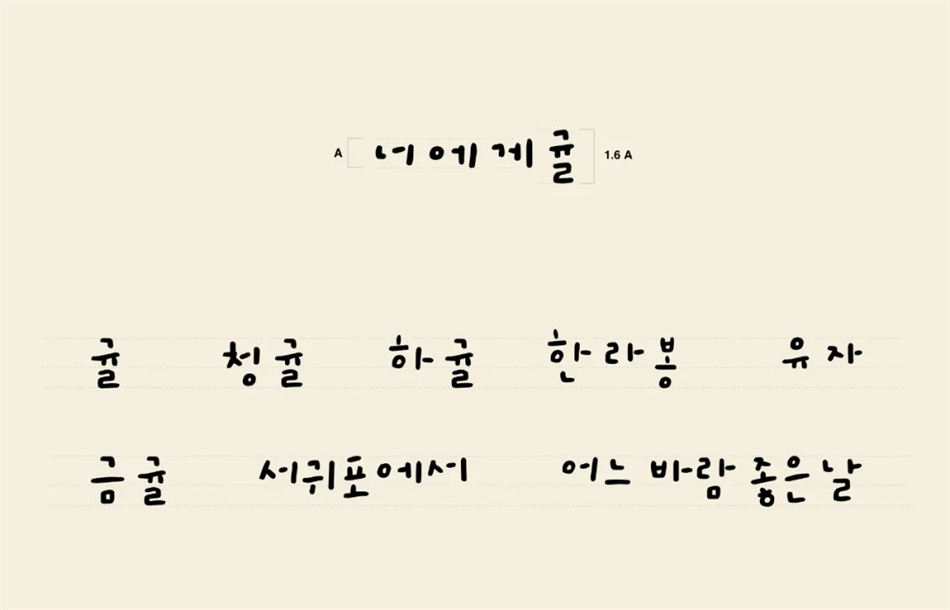 A 너에게귤 1.6 A
귤 청귤 하귤 한라봉 유자
금귤 서귀포에서 어느 바람 좋은날